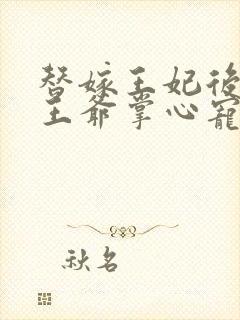 替嫁王妃後
王爺掌心寵
秋名